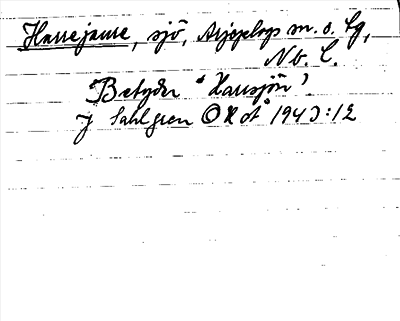 Harrejaure, sjö, Arjeplogs m. o. lg,
Nb. l.
Betyder "Harrsjön".
J Sahlgren OKot 1943:12